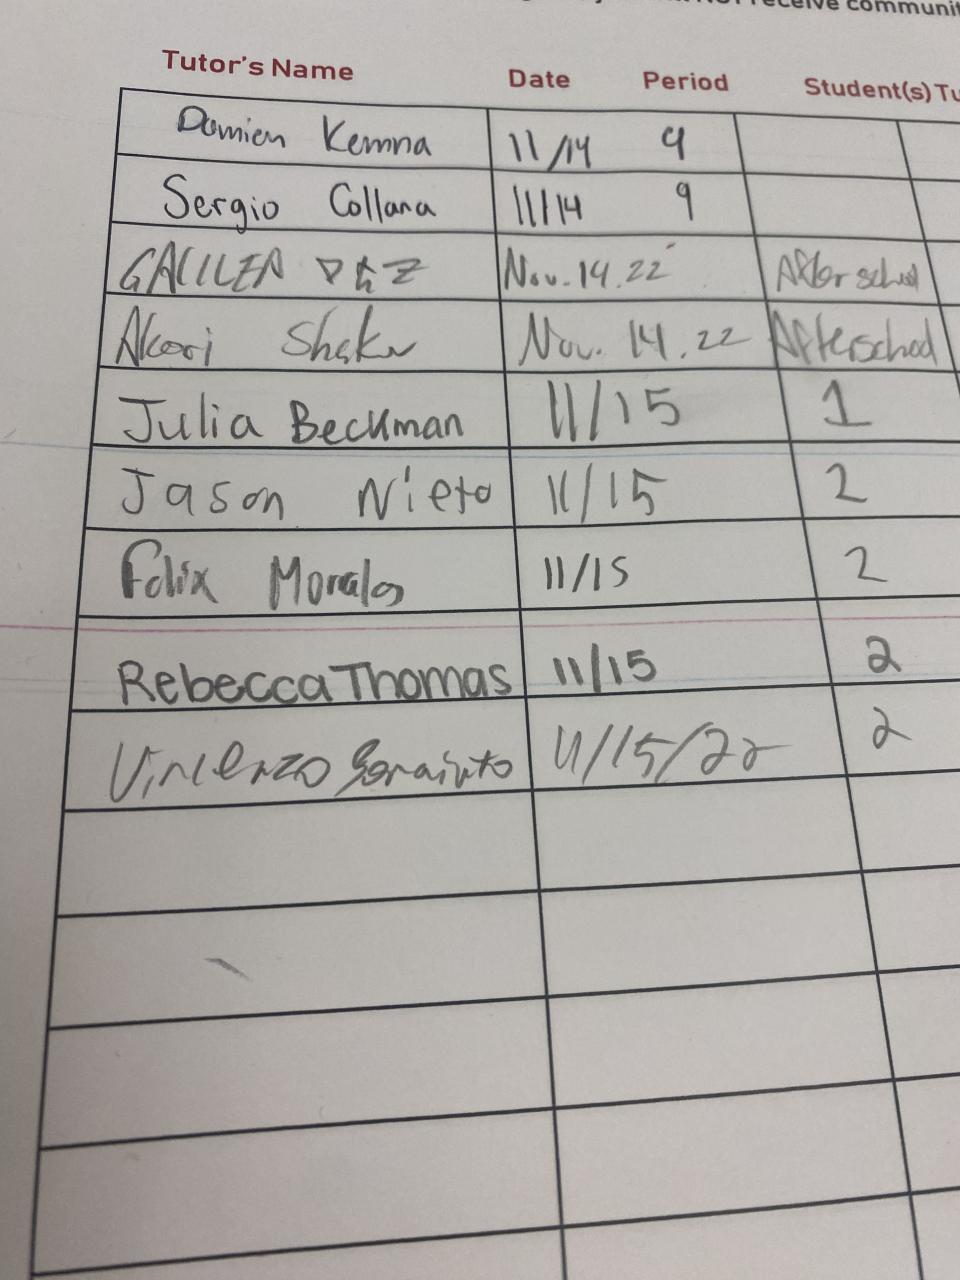 NOT receive communit
Tutor's Name Date Period Student(s) Tu
Damien Kemna 11/14 9
Sergio Collana 11/14 9
GALILEA DÍAZ Nov. 14. 22 After school
Akori Nov. 14. 22 Afterschool
Julia Beckman 11/15 1
Jason Nieto 11/15 2
Felix Morales 11/15 2
Rebecca Thomas 11/15 2
Vincenzo 11/15/22 2